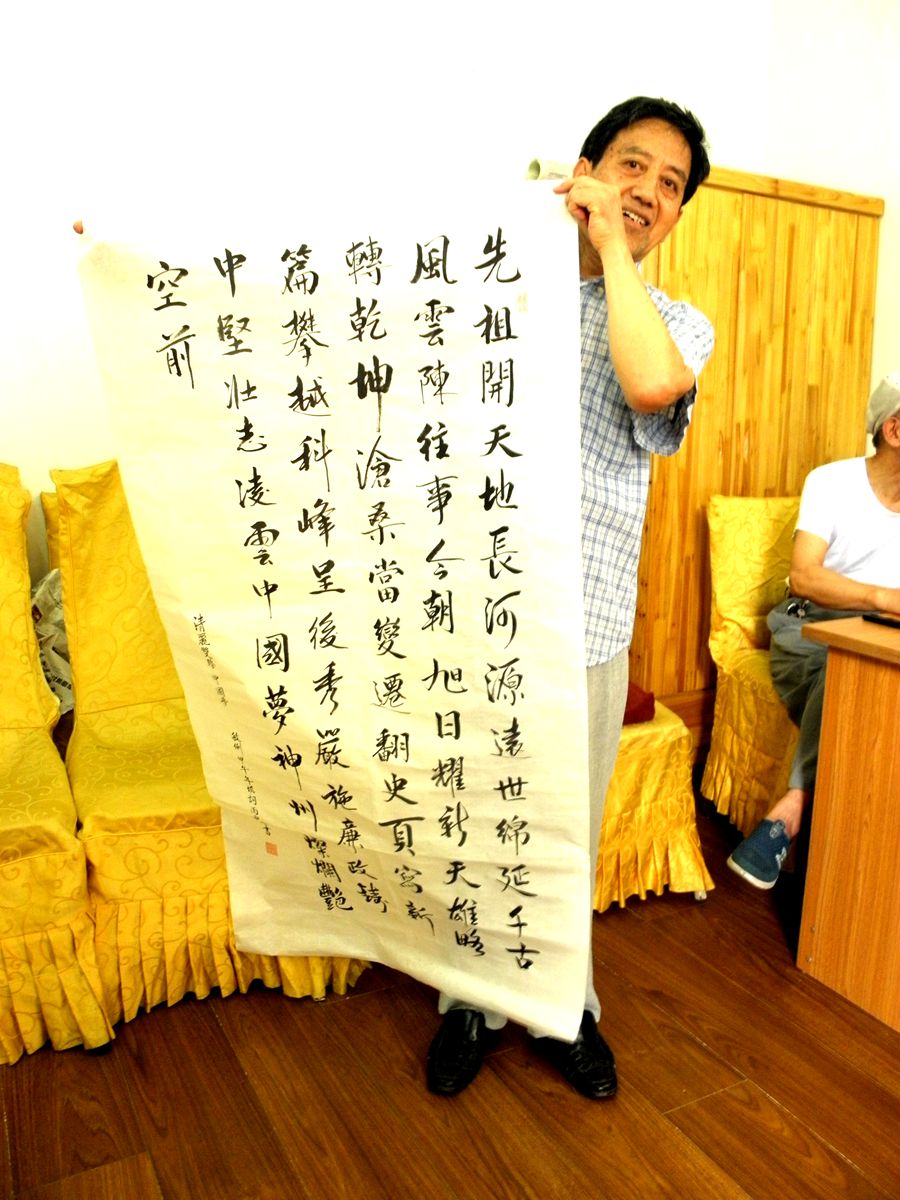 先祖開天地長河源遠世綿延千古
風雲陳往事今朝旭日耀新天雄略
轉乾坤滄桑當變遷翻史頁寫新
篇攀越科峰呈後秀嚴施廉政鑄
中堅壯志凌雲中國夢神州燦爛艷
空前
甲午年
書